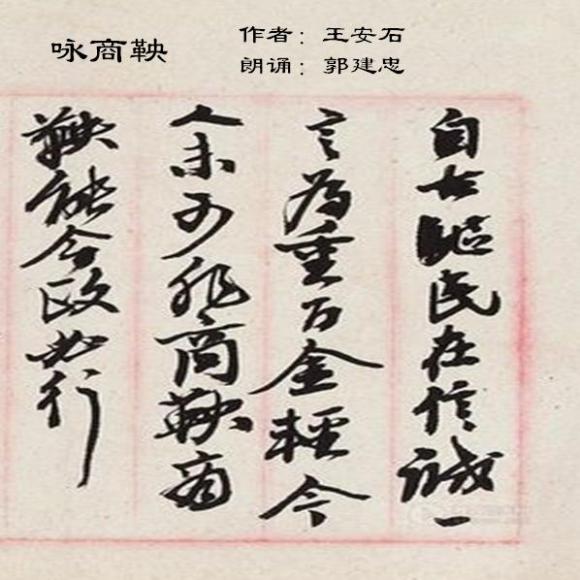 咏商鞅
作者：王安石
朗诵：郭建忠
自古驱民在信诚一
言为重百金轻今
人未可非商鞅商
鞅能令政必行